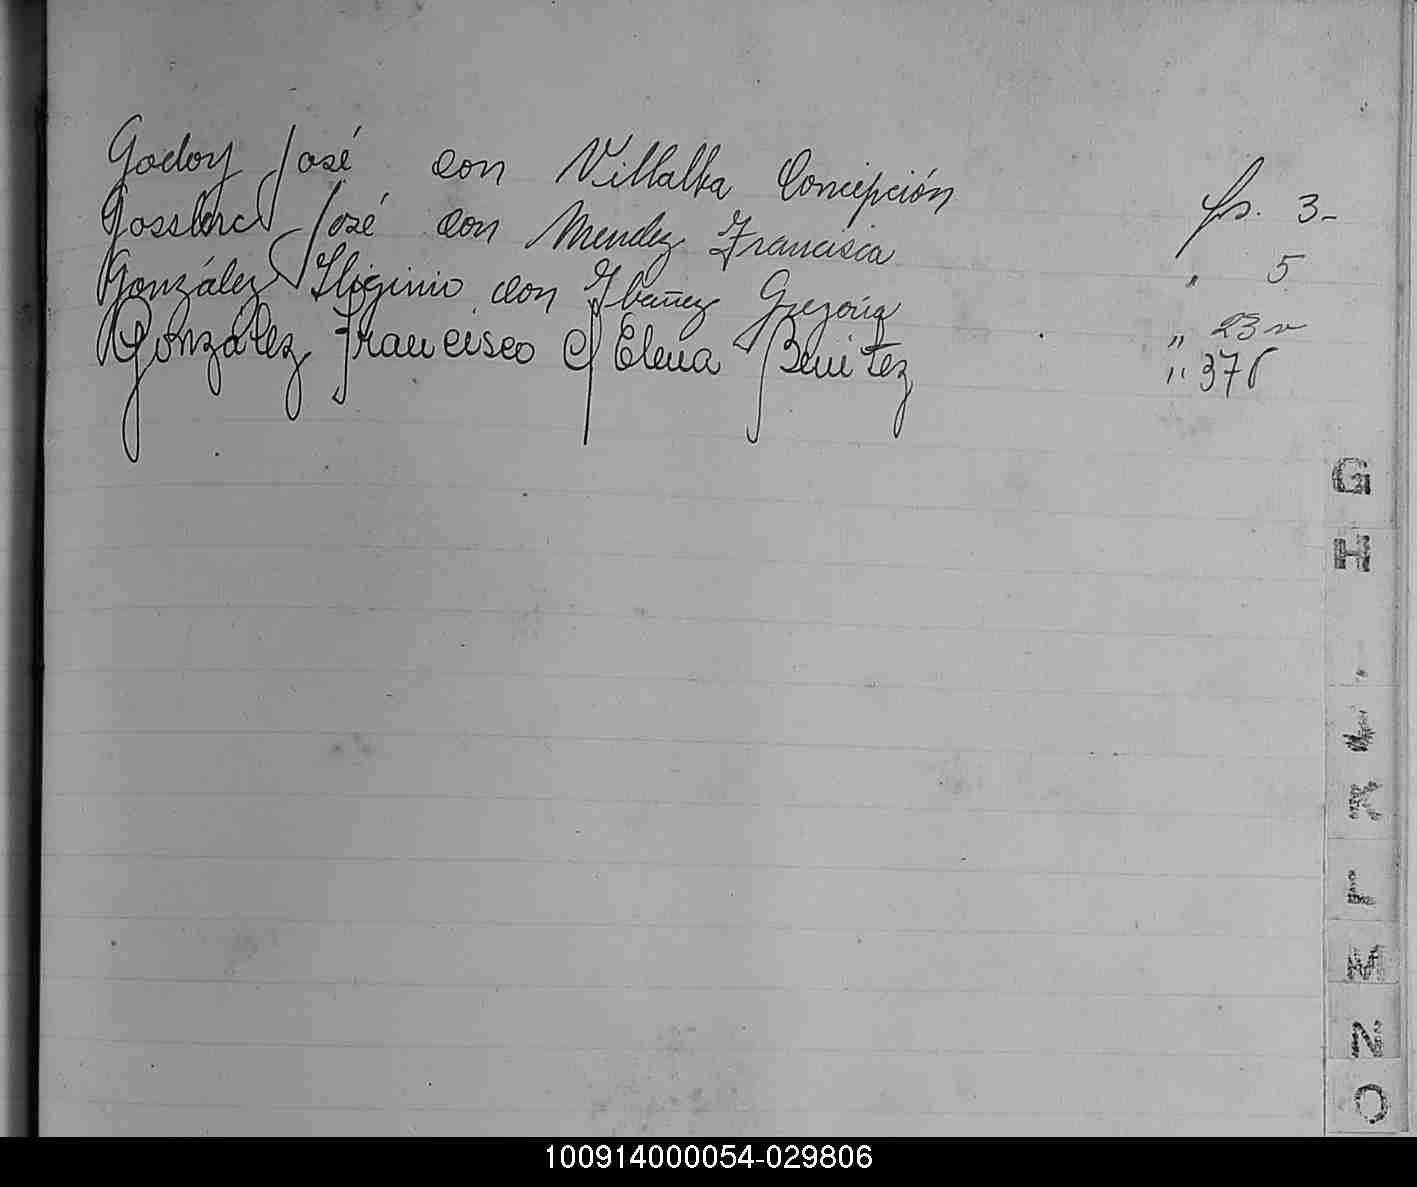 Godoy José con Villalba Concepción fs. 3-
José con Mendez Francisca " 5
González Higinio con Ibañez Gregoria " 23 v
González Francisco c/ Elena Benitez " 37
G
H
K
L
M
N
O
100914000054-029806